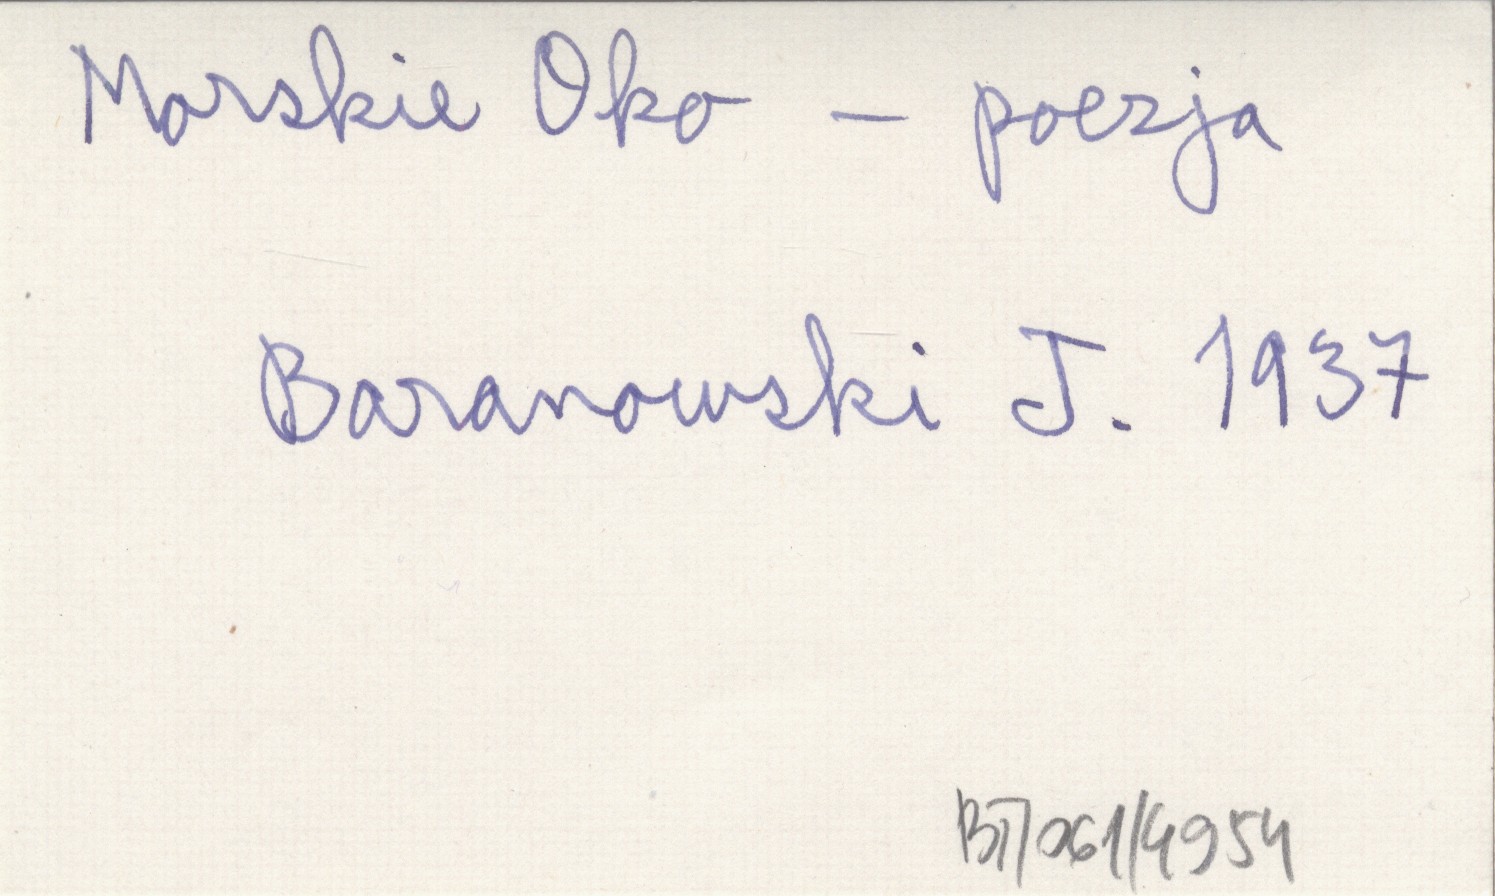 Morskie Oko – poezja
Baranowski J. 1937
BT/061/4954